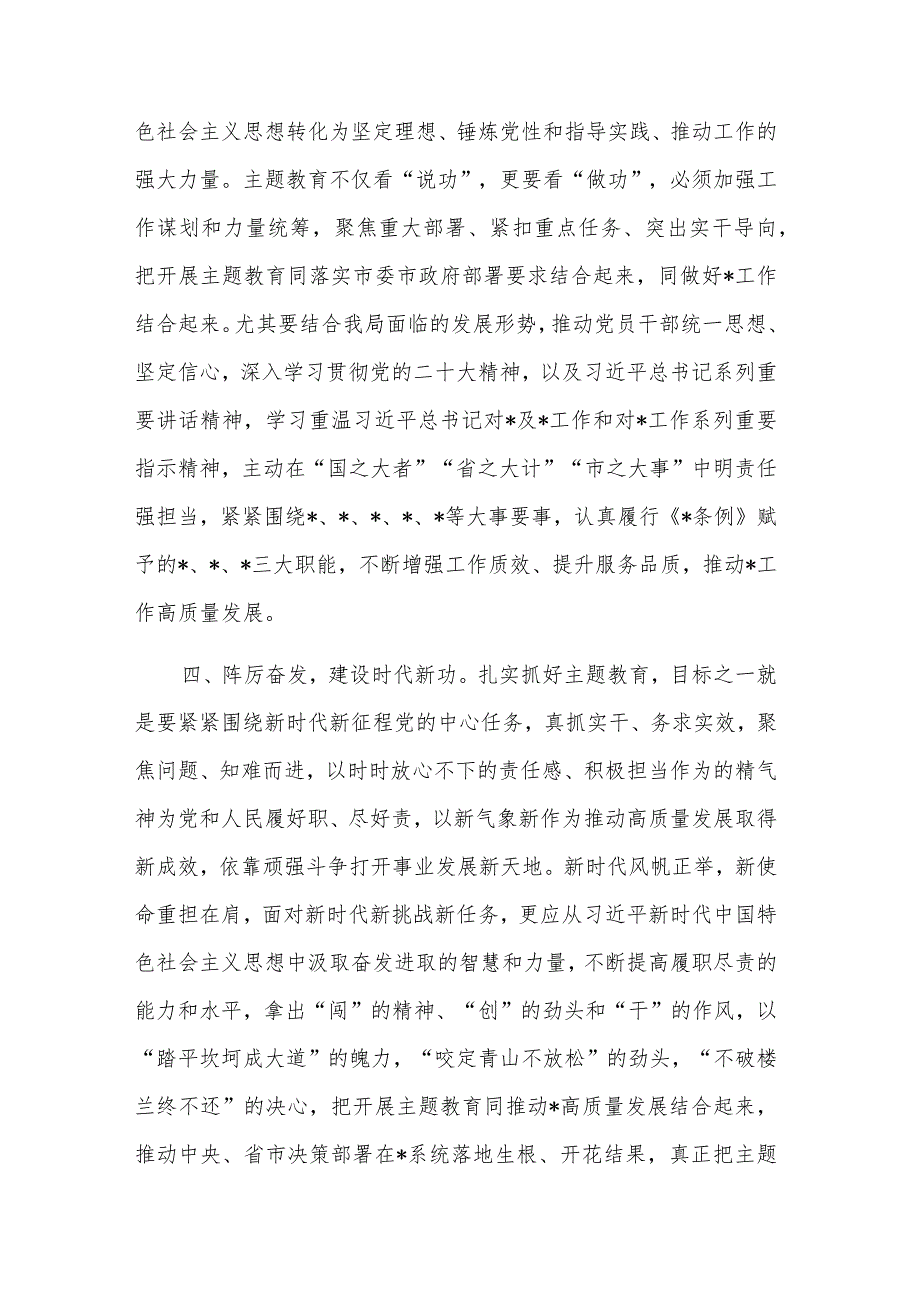 色社会主义思想转化为坚定理想、锤炼党性和指导实践、推动工作的
强大力量。主题教育不仅看“说功”，更要看“做功”，必须加强工
作谋划和力量统筹，聚焦重大部署、紧扣重点任务、突出实干导向，
把开展主题教育同落实市委市政府部署要求结合起来，同做好*工作
结合起来。尤其要结合我局面临的发展形势，推动党员干部统一思想、
坚定信心，深入学习贯彻党的二十大精神，以及习近平总书记系列重
要讲话精神，学习重温习近平总书记对*及*工作和对*工作系列重要
指示精神，主动在“国之大者”“省之大计”“市之大事”中明责任
强担当，紧紧围绕*、*、*、*、*等大事要事，认真履行《*条例》赋
予的*、*、*三大职能，不断增强工作质效、提升服务品质，推动*工
作高质量发展。
四、阵厉奋发，建设时代新功。扎实抓好主题教育，目标之一就
是要紧紧围绕新时代新征程党的中心任务，真抓实干、务求实效，聚
焦问题、知难而进，以时时放心不下的责任感、积极担当作为的精气
神为党和人民履好职、尽好责，以新气象新作为推动高质量发展取得
新成效，依靠顽强斗争打开事业发展新天地。新时代风帆正举，新使
命重担在肩，面对新时代新挑战新任务，更应从习近平新时代中国特
色社会主义思想中汲取奋发进取的智慧和力量，不断提高履职尽责的
能力和水平，拿出“闯”的精神、“创”的劲头和“干”的作风，以
“踏平坎坷成大道”的魄力，“咬定青山不放松”的劲头，“不破楼
兰终不还”的决心，把开展主题教育同推动*高质量发展结合起来，
推动中央、省市决策部署在*系统落地生根、开花结果，真正把主题